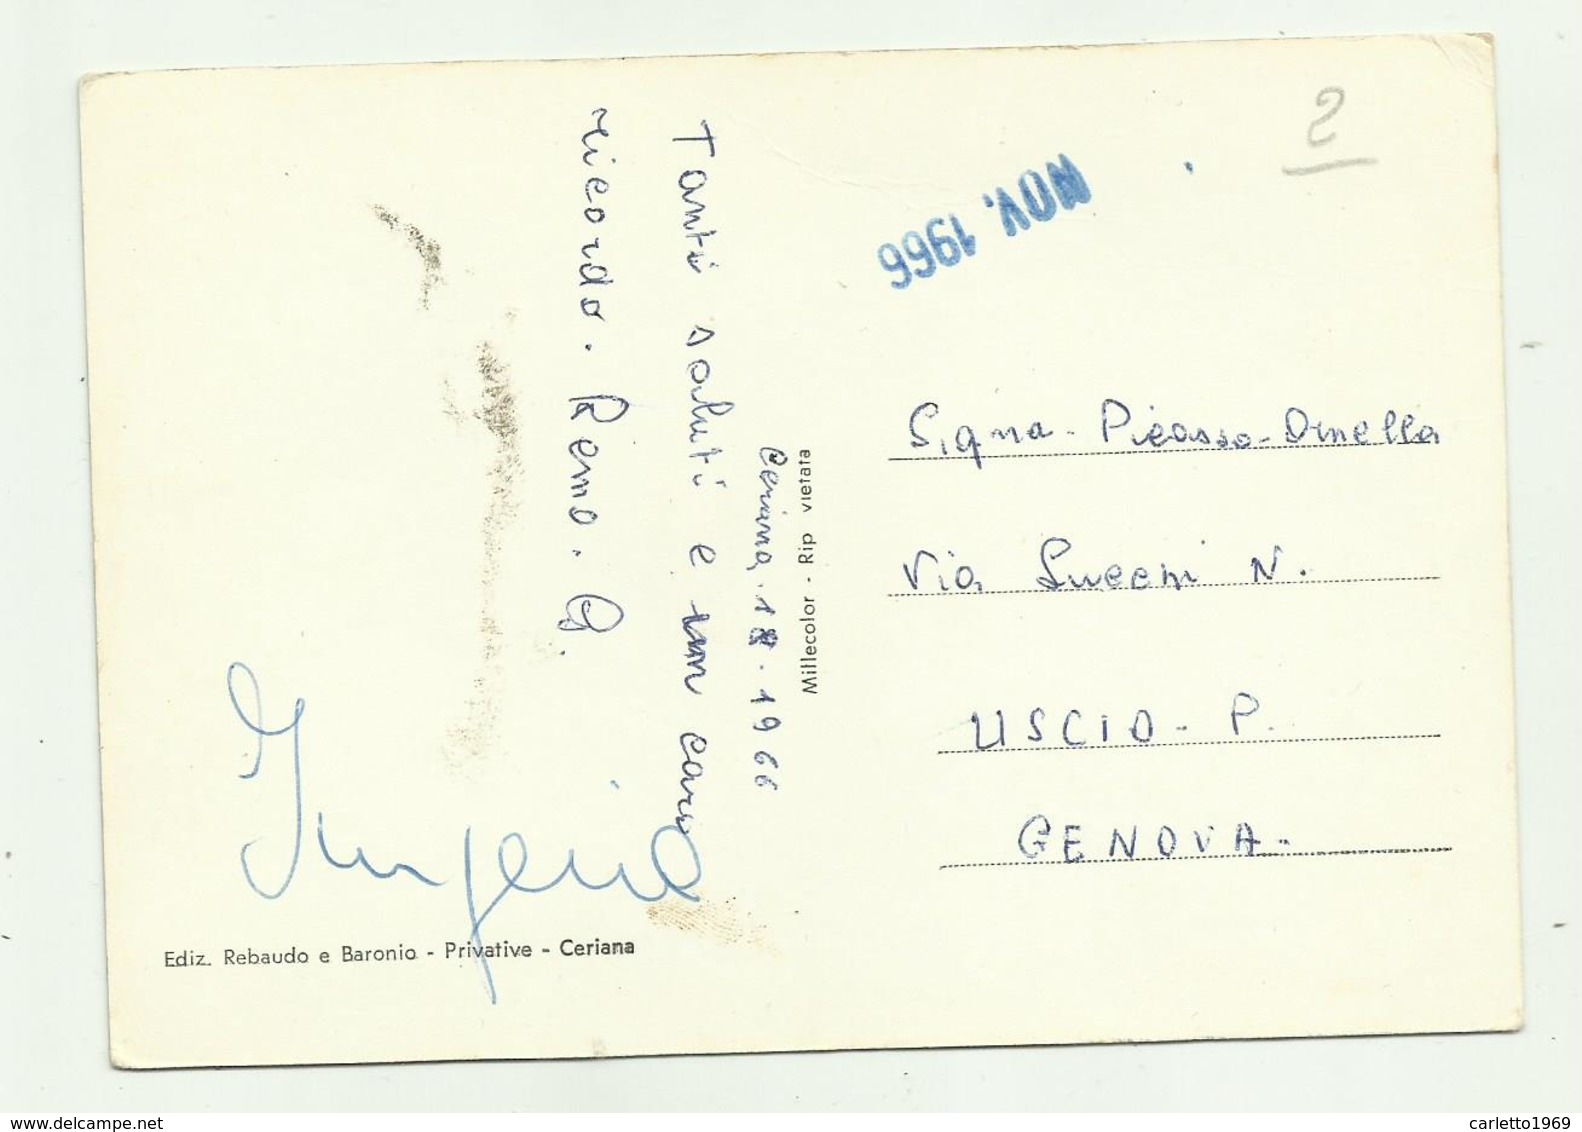 Ceriana, 18.1966
Tanti saluti e un caro
ricordo. Remo. G.
Eugenia
Millecolor - Rip vietata
Ediz. Rebaudo e Baronio - Privative - Ceriana
NOV. 1966
2
Signa - Picasso - Ornella
Via N.
USCIO - P.
GENOVA -
www.delcampe.net
carletto1969